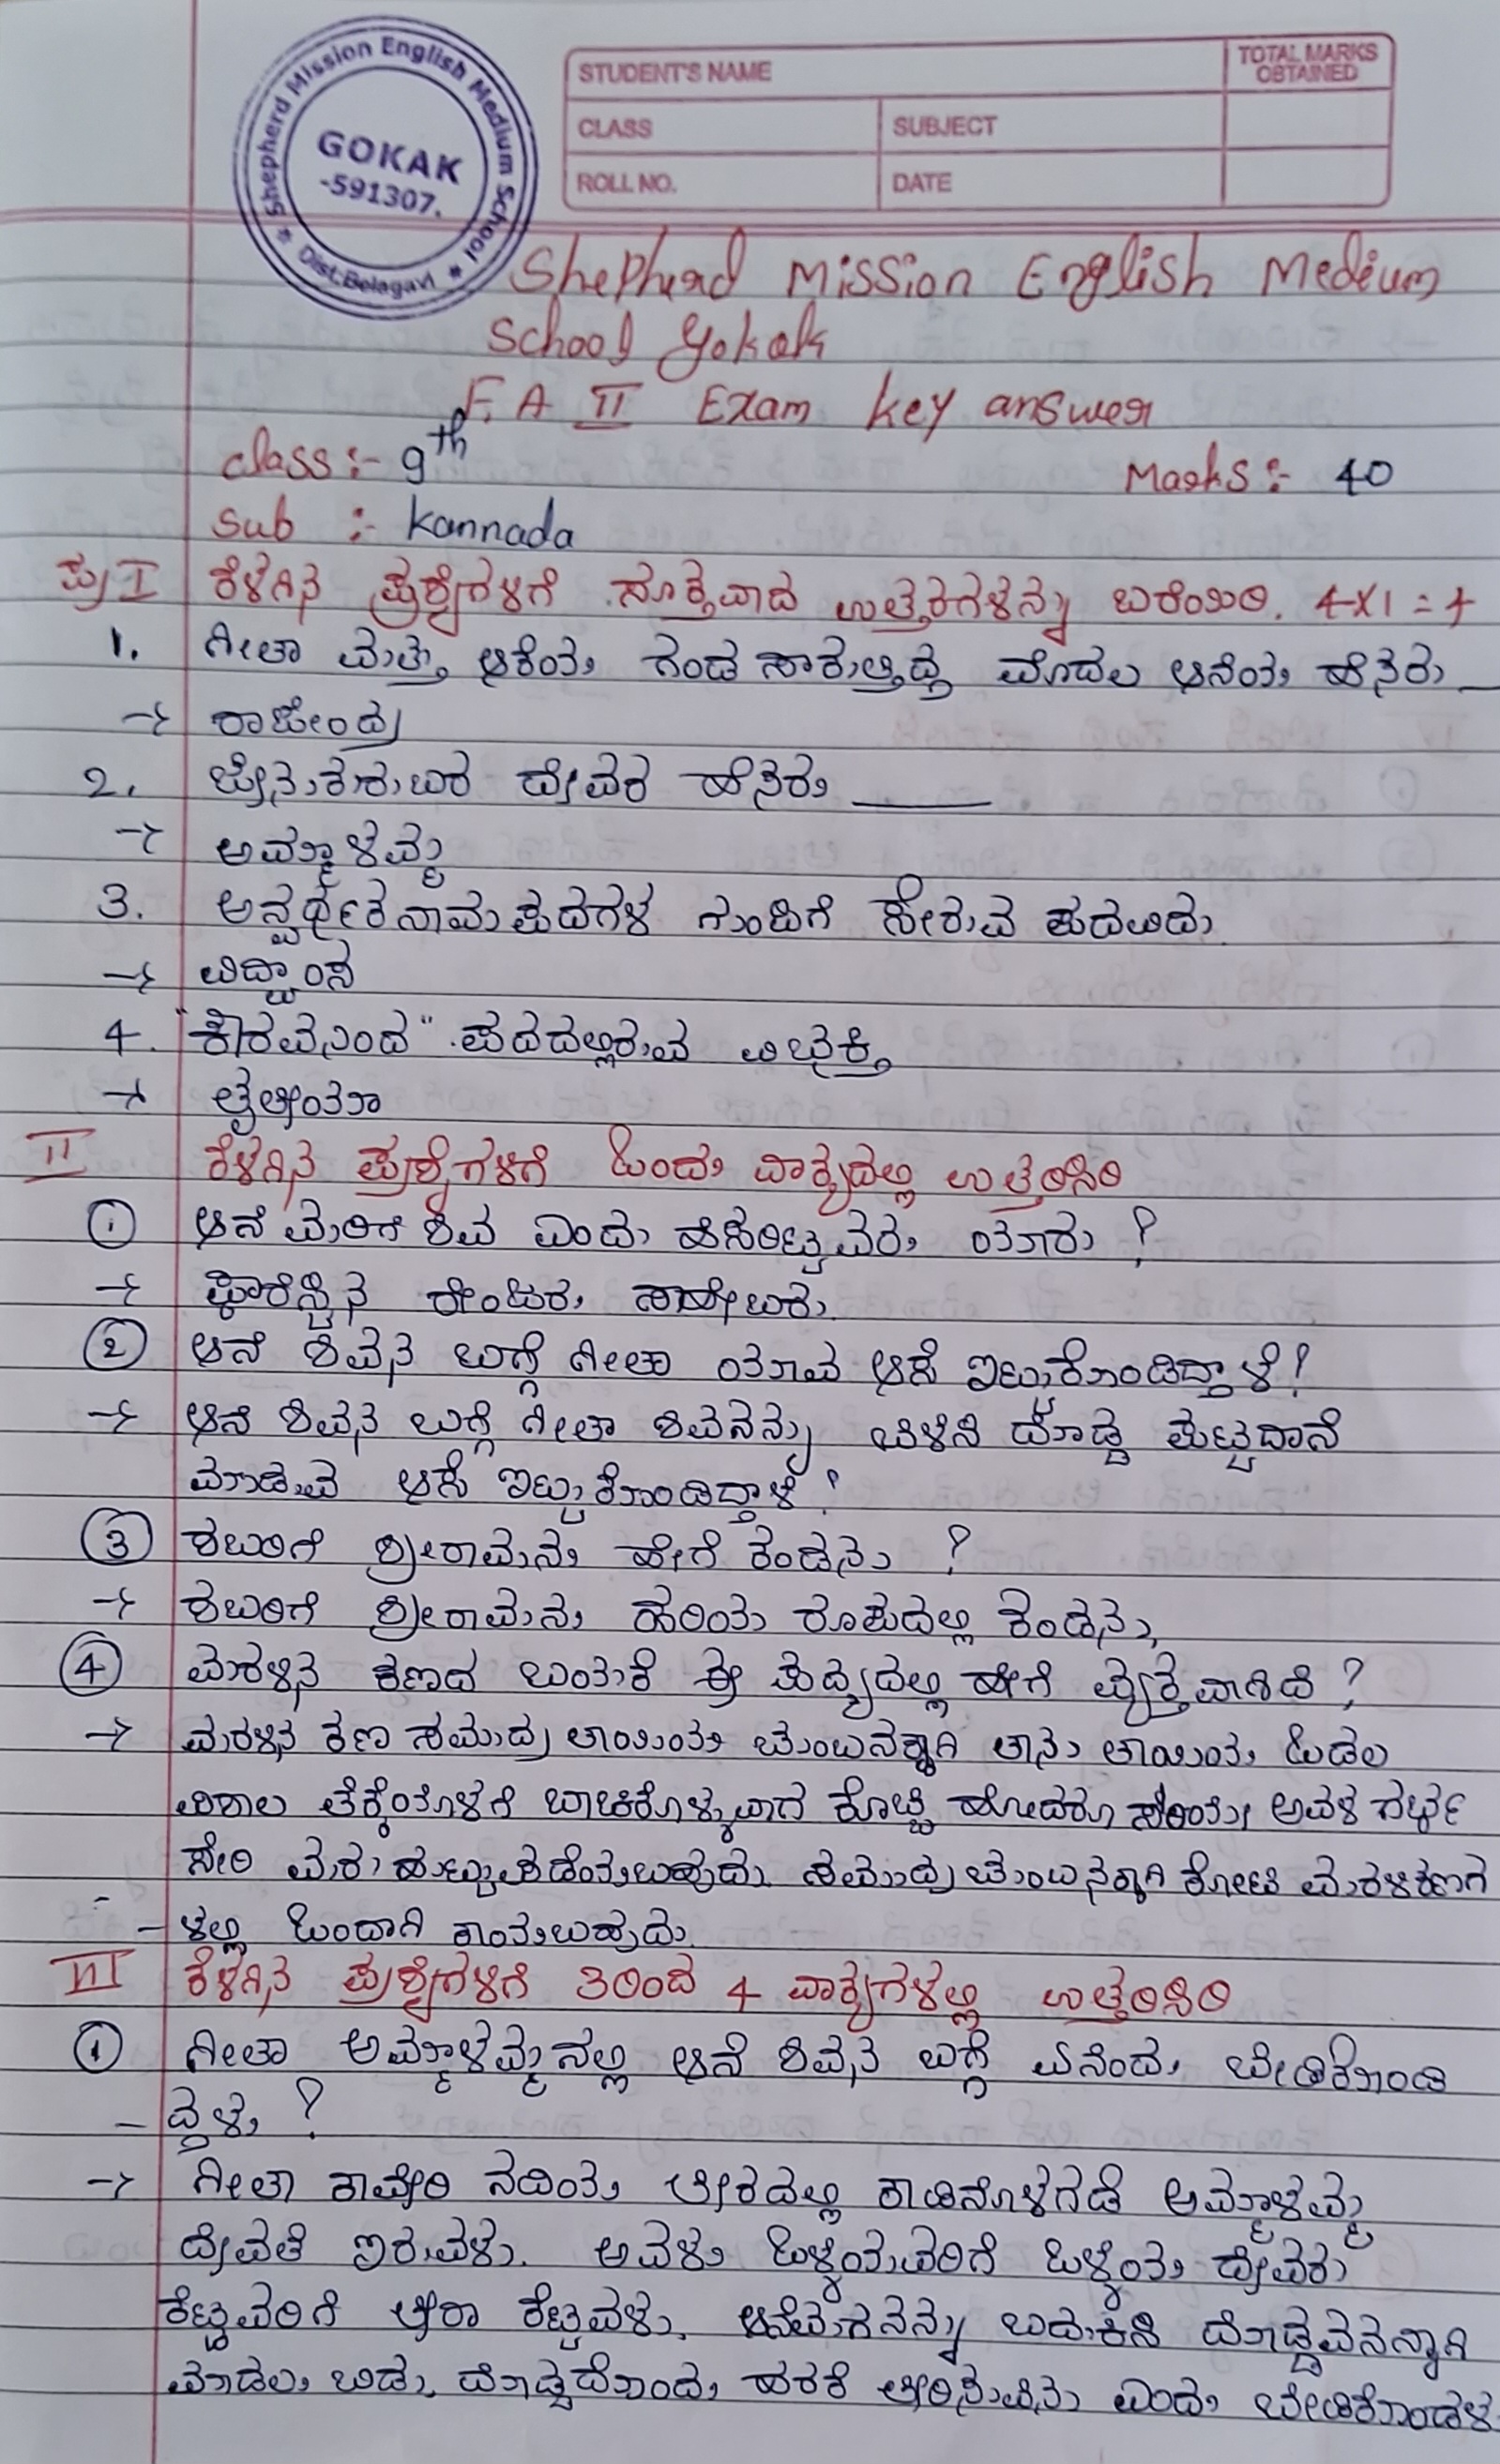 Shepherd Mission English Medium School
GOKAK
-591307.
* Dist:Belagavi *
STUDENT'S NAME
TOTAL MARKS
OBTAINED
CLASS
SUBJECT
ROLL NO.
DATE
Shepherd Mission English Medium
School Gokak
F.A II Exam key answer
class:- 9th Marks:- 40
Sub :- Kannada
ಪ್ರ I ಕೆಳಗಿನ ಪ್ರಶ್ನೆಗಳಿಗೆ ಸೂಕ್ತವಾದ ಉತ್ತರಗಳನ್ನು ಬರೆಯಿರಿ. 4X1=4
1. ಗೀತಾ ಮತ್ತು ಆಕೆಯ ಗಂಡ ಸಾಕುತ್ತಿದ್ದ ಮೊದಲ ಆನೆಯ ಹೆಸರು __
→ ರಾಜೇಂದ್ರ
2. ಜೇನುಕುರುಬರ ದೇವರ ಹೆಸರು ____
→ ಅಮ್ಮಾಳಮ್ಮ
3. ಅನ್ವರ್ಥಕನಾಮ ಪದಗಳ ಗುಂಪಿಗೆ ಸೇರುವ ಪದವಿದು.
→ ವಿದ್ವಾಂಸ
4. "ಕೌರವನಿಂದ" ಪದದಲ್ಲಿರುವ ವಿಭಕ್ತಿ
→ ತೃತೀಯಾ
II ಕೆಳಗಿನ ಪ್ರಶ್ನೆಗಳಿಗೆ ಒಂದು ವಾಕ್ಯದಲ್ಲಿ ಉತ್ತರಿಸಿರಿ
① ಆನೆ ಮರಿಗೆ ಶಿವ ಎಂದು ಹೆಸರಿಟ್ಟವರು ಯಾರು ?
→ ಫಾರೆಸ್ಟಿನ ರೇಂಜರು ಸಾಹೇಬರು.
② ಆನೆ ಶಿವನ ಬಗ್ಗೆ ಗೀತಾ ಯಾವ ಆಸೆ ಇಟ್ಟುಕೊಂಡಿದ್ದಾಳೆ!
→ ಆನೆ ಶಿವನ ಬಗ್ಗೆ ಗೀತಾ ಶಿವನನ್ನು ಬೆಳೆಸಿ ದೊಡ್ಡ ಪಟ್ಟದಾನೆ
ಮಾಡುವ ಆಸೆ ಇಟ್ಟುಕೊಂಡಿದ್ದಾಳೆ !
③ ಶಬರಿಗೆ ಶ್ರೀರಾಮನು ಹೇಗೆ ಕಂಡನು ?
→ ಶಬರಿಗೆ ಶ್ರೀರಾಮನು ಹರಿಯ ರೂಪದಲ್ಲಿ ಕಂಡನು,
④ ಮರಳಿನ ಕಣದ ಬಯಕೆ ಈ ಪದ್ಯದಲ್ಲಿ ಹೇಗೆ ವ್ಯಕ್ತವಾಗಿದೆ ?
→ ಮರಳಿನ ಕಣ ಸಮುದ್ರ ತಾಯಿಯ ಚುಂಬನಕ್ಕಾಗಿ ತಾನು ತಾಯಿಯ ಒಡಲ
ವಿಶಾಲ ತೆಕ್ಕೆಯೊಳಗೆ ಬಾಚಿಕೊಳ್ಳುವಾಗ ಕೊಚ್ಚಿ ಹೋದರೂ ಸರಿಯೆ, ಅವಳ ಗರ್ಭ
ಸೇರಿ ಮರು ಹುಟ್ಟು ಪಡೆಯಬಹುದು. ಸಮುದ್ರ ಚುಂಬನಕ್ಕಾಗಿ ಕೋಟಿ ಮರಳಕಣಗ
- ಳಲ್ಲಿ ಒಂದಾಗಿ ಕಾಯಬಹುದು.
III ಕೆಳಗಿನ ಪ್ರಶ್ನೆಗಳಿಗೆ 3ರಿಂದ 4 ವಾಕ್ಯಗಳಲ್ಲಿ ಉತ್ತರಿಸಿರಿ
① ಗೀತಾ ಅಮ್ಮಾಳಮ್ಮನಲ್ಲಿ ಆನೆ ಶಿವನ ಬಗ್ಗೆ ಏನೆಂದು ಬೇಡಿಕೊಂಡಿ
- ದ್ದಳು ?
→ ಗೀತಾ ಕಾವೇರಿ ನದಿಯ ತೀರದಲ್ಲಿ ಕಾಡಿನೊಳಗಡೆ ಅಮ್ಮಾಳಮ್ಮ
ದೇವತೆ ಇರುವಳು. ಅವಳು ಒಳ್ಳೆಯವರಿಗೆ ಒಳ್ಳೆಯ ದೇವರು
ಕೆಟ್ಟವರಿಗೆ ತೀರಾ ಕೆಟ್ಟವಳು. ಆನೆಮಗನನ್ನು ಬದುಕಿಸಿ ದೊಡ್ಡವನನ್ನಾಗಿ
ಮಾಡಲು ಬಿಡು, ದೊಡ್ಡದೊಂದು ಹರಕೆ ತೀರಿಸುವೆನು ಎಂದು ಬೇಡಿಕೊಂಡಳು